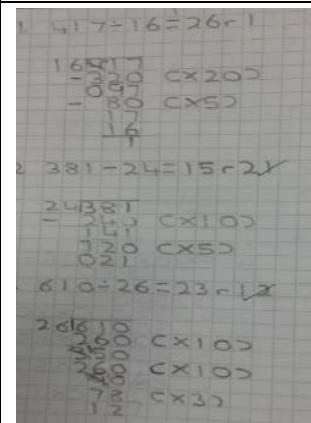 1 417÷16=26r1
16417
-320 (×20)
097
- 80 (×5)
17
16
1
2 381-24=15r21
24381
- 240 (×10)
141
120 (×5)
021
610÷26=23r12
26610
260 (×10)
350
260 (×10)
90
78 (×3)
12